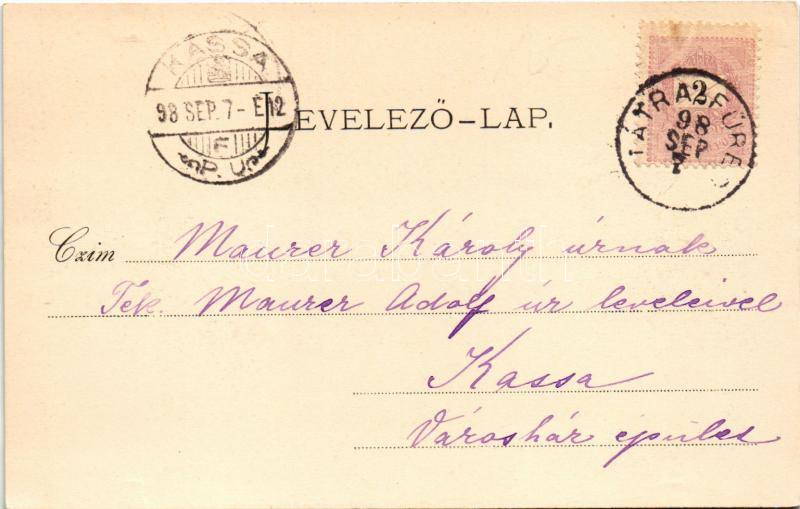 KASSA
98 SEP. 7 - E 12
F
P. U.
LEVELEZŐ-LAP.
2
TÁTRAFÜRED
98
SEP
7
Czim Maurer Károly úrnak
Tek. Maurer Adolf úr leveleivel
Kassa
Városház épület
darabanth